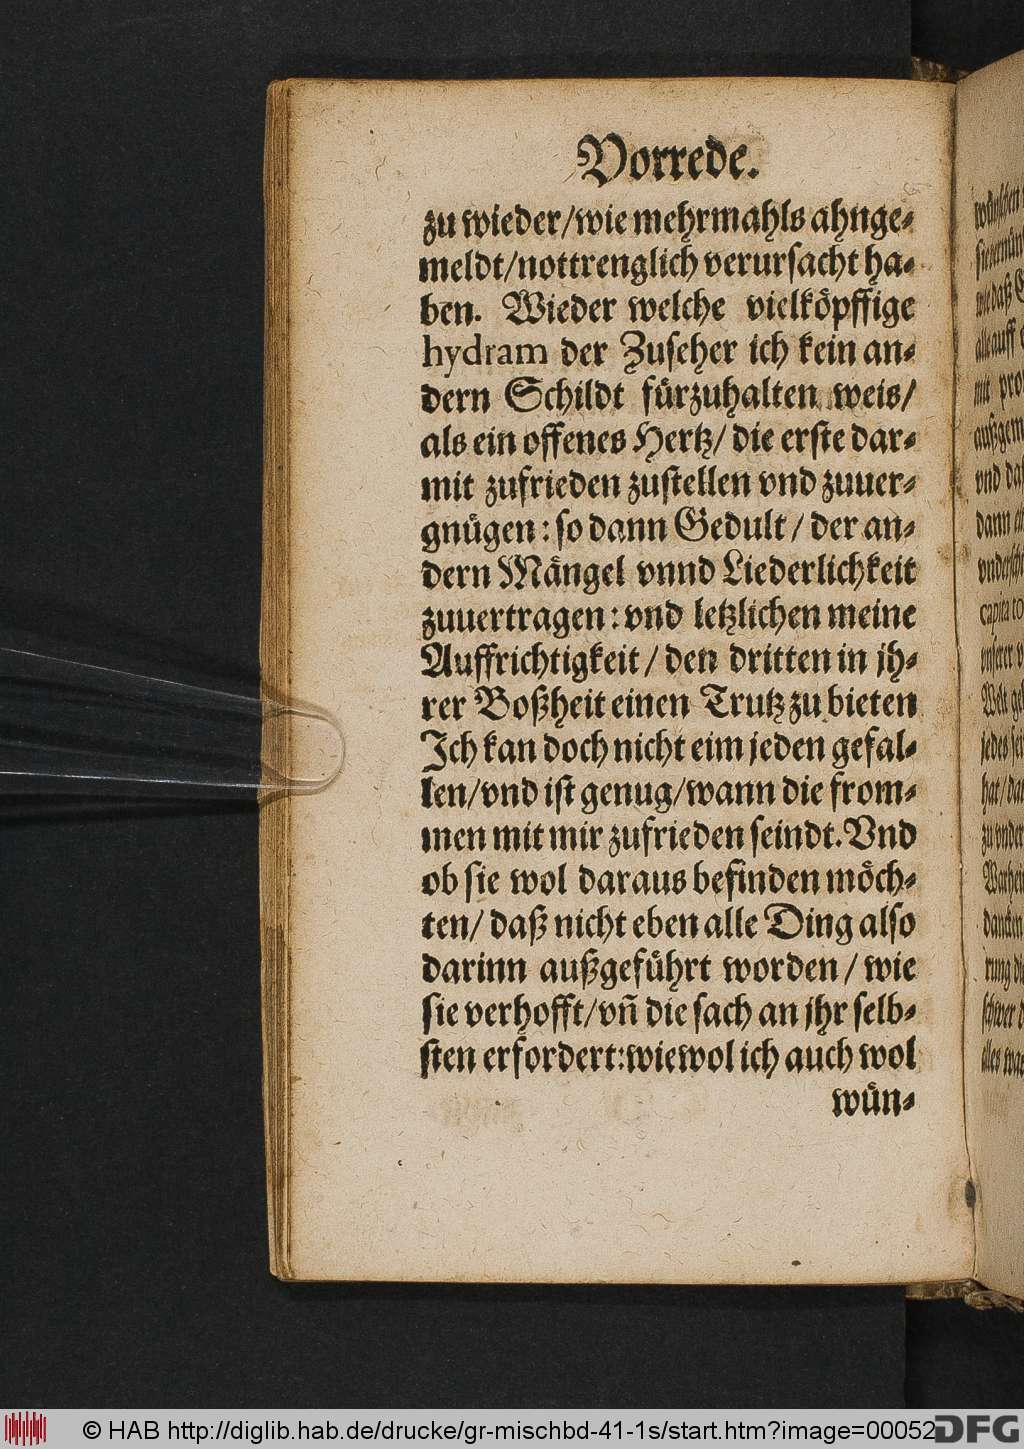 Vorrede.
zu wieder/wie mehrmahls ahnge-
meldt/nottrenglich verursacht ha-
ben. Wieder welche vielköpffige
hydram der Zuseher ich kein an-
dern Schildt fürzuhalten weis/
als ein offenes Hertz/ die erste dar-
mit zufrieden zustellen vnd zuuer-
gnügen: so dann Gedult / der an-
dern Mängel vnnd Liederlichkeit
zuuertragen: vnd letzlichen meine
Auffrichtigkeit / den dritten in jh-
rer Boßheit einen Trutz zu bieten
Ich kan doch nicht eim jeden gefal-
len/vnd ist genug/wann die from-
men mit mir zufrieden seindt. Vnd
ob sie wol daraus befinden möch-
ten/ daß nicht eben alle Ding also
darinn außgeführt worden / wie
sie verhofft/vñ die sach an jhr selb-
sten erfordert: wiewol ich auch wol
wün-
wünschen
wie daß
alle auff
mit
vnd daß
dann
capita
vnserer
Welt
hat/
alles
© HAB http://diglib.hab.de/drucke/gr-mischbd-41-1s/start.htm?image=00052
DFG